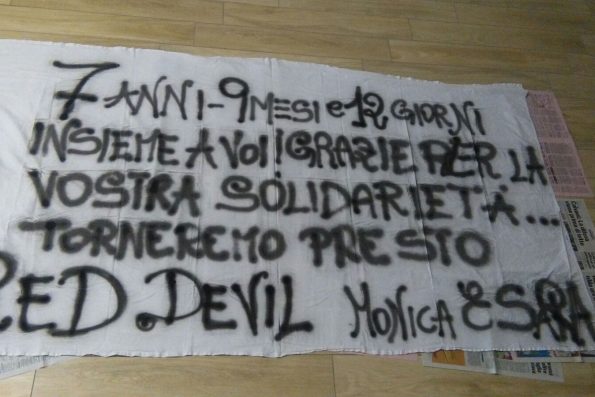 7 ANNI - 9 MESI e 12 GIORNI
INSIEME A VOI! GRAZIE PER LA
VOSTRA SOLIDARIETÀ...
TORNEREMO PRESTO
RED.DEVIL MONICA E SARA